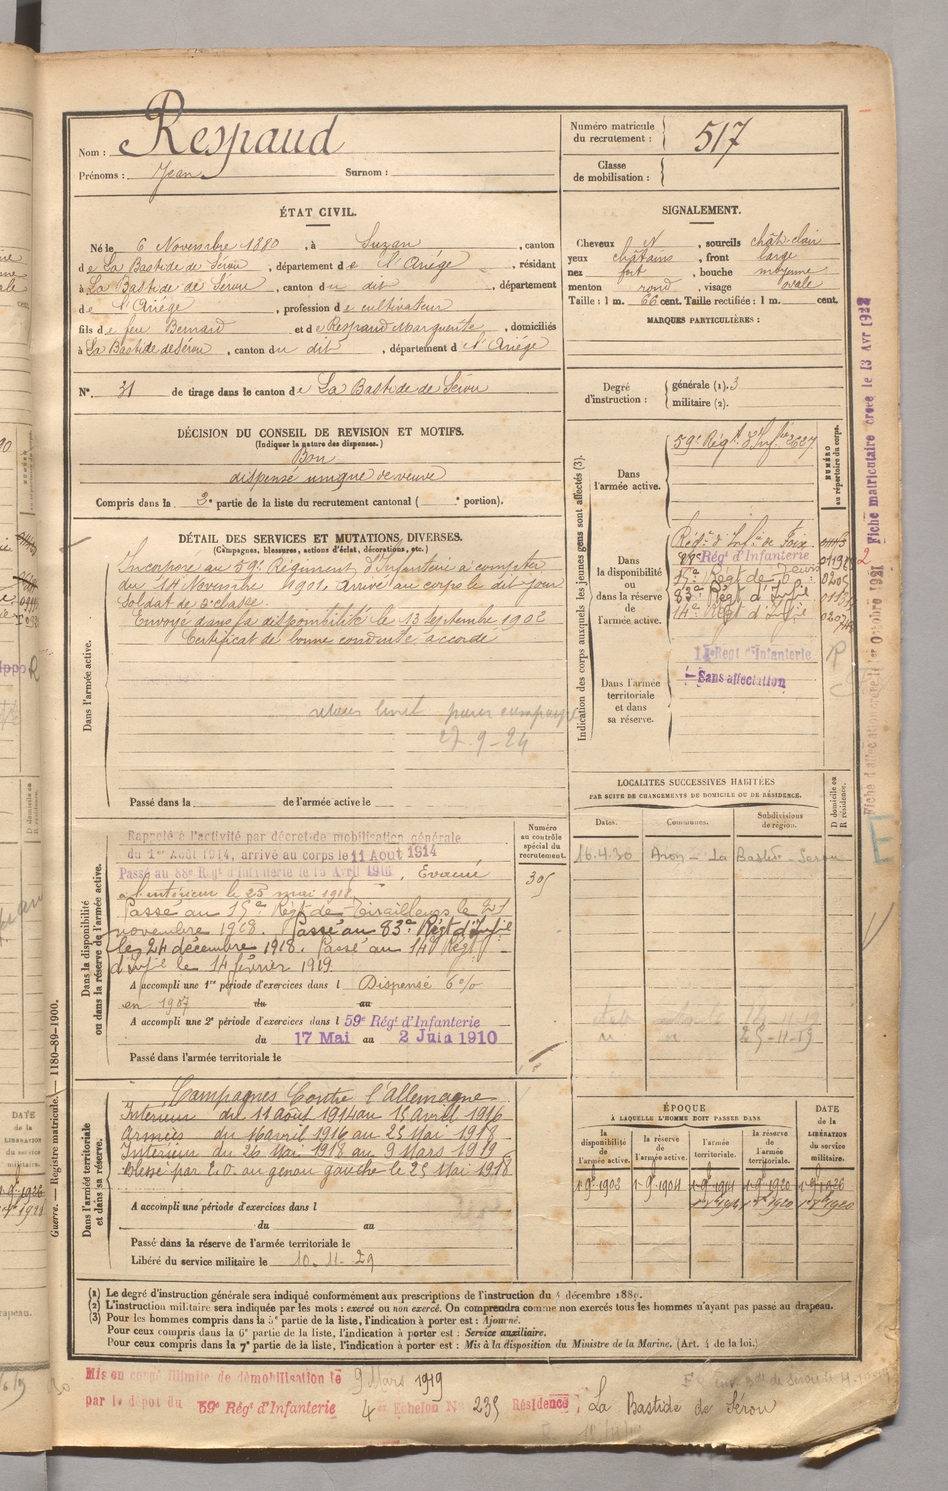 Nom : Respaud
Prénoms : Jean Surnom :
Numéro matricule du recrutement : 517
Classe de mobilisation :
ÉTAT CIVIL.
Né le 6 Novembre 1880, à Suzan, canton
de La Bastide de Sérou, département de l'Ariége, résidant
à La Bastide de Sérou, canton du dit, département
de l'Ariége, profession de cultivateur
fils de feu Bernard et de Respaud Marguerite, domiciliés
à La Bastide de Sérou, canton du dit, département d l'Ariége
N° 31 de tirage dans le canton de La Bastide de Sérou
SIGNALEMENT.
Cheveux N, sourcils chât-clair
yeux châtains, front large
nez fort, bouche moyenne
menton rond, visage ovale
Taille : 1 m. 66 cent. Taille rectifiée : 1 m. cent.
MARQUES PARTICULIÈRES :
Degré d'instruction : générale (1). 3
militaire (2).
DÉCISION DU CONSEIL DE REVISION ET MOTIFS.
(Indiquer la nature des dispenses.)
Bon
dispensé unique de veuve
Compris dans la 2e partie de la liste du recrutement cantonal ( e portion).
DÉTAIL DES SERVICES ET MUTATIONS DIVERSES.
(Campagnes, blessures, actions d'éclat, décorations, etc.)
Dans l'armée active.
Incorporé au 59e Régiment d'Infanterie à compter
du 14 Novembre 1901. Arrivé au corps le dit jour
Soldat de 2e classe.
Envoyé dans la disponibilité le 13 septembre 1902
Certificat de bonne conduite accordé
27-9-24
Passé dans la de l'armée active le
Indication des corps auxquels les jeunes gens sont affectés (3).
NUMÉRO au répertoire du corps.
Dans l'armée active.
59e Régt d'Infie 2627
Dans la disponibilité ou dans la réserve de l'armée active.
Régt d'Infie de Foix
88e Régt d'Infanterie
15e Régt de
83e Régt d'Infie
14e Régt d'Infie
Dans l'armée territoriale et dans sa réserve.
14e Régt d'Infanterie
Sans affectation
LOCALITES SUCCESSIVES HABITÉES
PAR SUITE DE CHANGEMENTS DE DOMICILE OU DE RÉSIDENCE.
D domicile ou R résidence.
Dates. Communes. Subdivisions de région.
16.4.30 Aron - La Bastide Serou
25-11-19
Dans la disponibilité ou dans la réserve de l'armée active.
Numéro au contrôle spécial du recrutement.
305
Rappelé à l'activité par décret de mobilisation générale
du 1er Août 1914, arrivé au corps le 11 Août 1914
Passé au 88e Régt d'Infanterie le 16 Avril 1916, Evacué
à l'intérieur le 25 mai 1918.
Passé au 15e Régt de Tirailleurs le 21
novembre 1918. Passé au 83e Régt d'Infie
le 24 décembre 1918. Passé au 14e Régt
d'Infie le 14 février 1919.
A accompli une 1re période d'exercices dans l Dispensé 6%
en 1907 du au
A accompli une 2e période d'exercices dans l 59e Régt d'Infanterie
du 17 Mai au 2 Juin 1910
Passé dans l'armée territoriale le
Dans l'armée territoriale et dans sa réserve.
Campagnes Contre l'Allemagne
Intérieur du 11 août 1914 au 15 avril 1916
Armées du 16 avril 1916 au 25 Mai 1918
Intérieur du 26 Mai 1918 au 9 Mars 1919
Blessé par E.O. au genou gauche le 25 Mai 1918.
A accompli une période d'exercices dans l
du au
Passé dans la réserve de l'armée territoriale le
Libéré du service militaire le 10.11.29
ÉPOQUE
À LAQUELLE L'HOMME DOIT PASSER DANS
la disponibilité de l'armée active.
la réserve de l'armée active.
l'armée territoriale.
la réserve de l'armée territoriale.
DATE de la LIBÉRATION du service militaire.
(1) Le degré d'instruction générale sera indiqué conformément aux prescriptions de l'instruction du 4 décembre 1889.
(2) L'instruction militaire sera indiquée par les mots : exercé ou non exercé. On comprendra comme non exercés tous les hommes n'ayant pas passé au drapeau.
(3) Pour les hommes compris dans la 5e partie de la liste, l'indication à porter est : Ajourné.
Pour ceux compris dans la 6e partie de la liste, l'indication à porter est : Service auxiliaire.
Pour ceux compris dans la 7e partie de la liste, l'indication à porter est : Mis à la disposition du Ministre de la Marine. (Art. 4 de la loi.)
Mis en congé illimité de démobilisation le 9 Mars 1919
par le dépôt du 59e Régt d'Infanterie 4e Echelon No 235 Résidence : La Bastide de Sérou
Guerre. — Registre matricule. — 1180-89-1900.
Fiche matriculaire créée le 13 Avr 1932